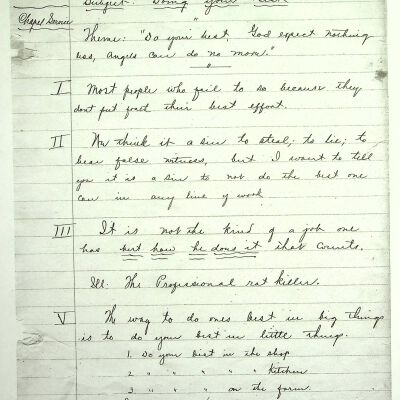 Subject: Doing your best
Chapel Service
"
Theme: "Do your best, God expect nothing
less, angels can do no more."
"
I Most people who fail to so because they
don't put forth their best effort.
II We think it a sin to steal; to lie; to
bear false witness, but I want to tell
you it is a sin to not do the best one
can in any line of work
III It is not the kind of a job one
has but how he does it that counts.
Ill: The Professional rat killer.
V The way to do ones best in big things
is to do your best in little things.
1. Do your best in the shop
2 " " " " " kitchen
3 " " " on the farm